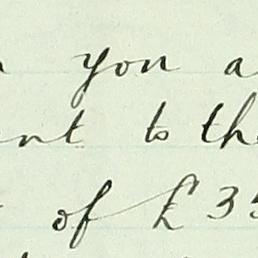 you a
nt to th
of £ 35